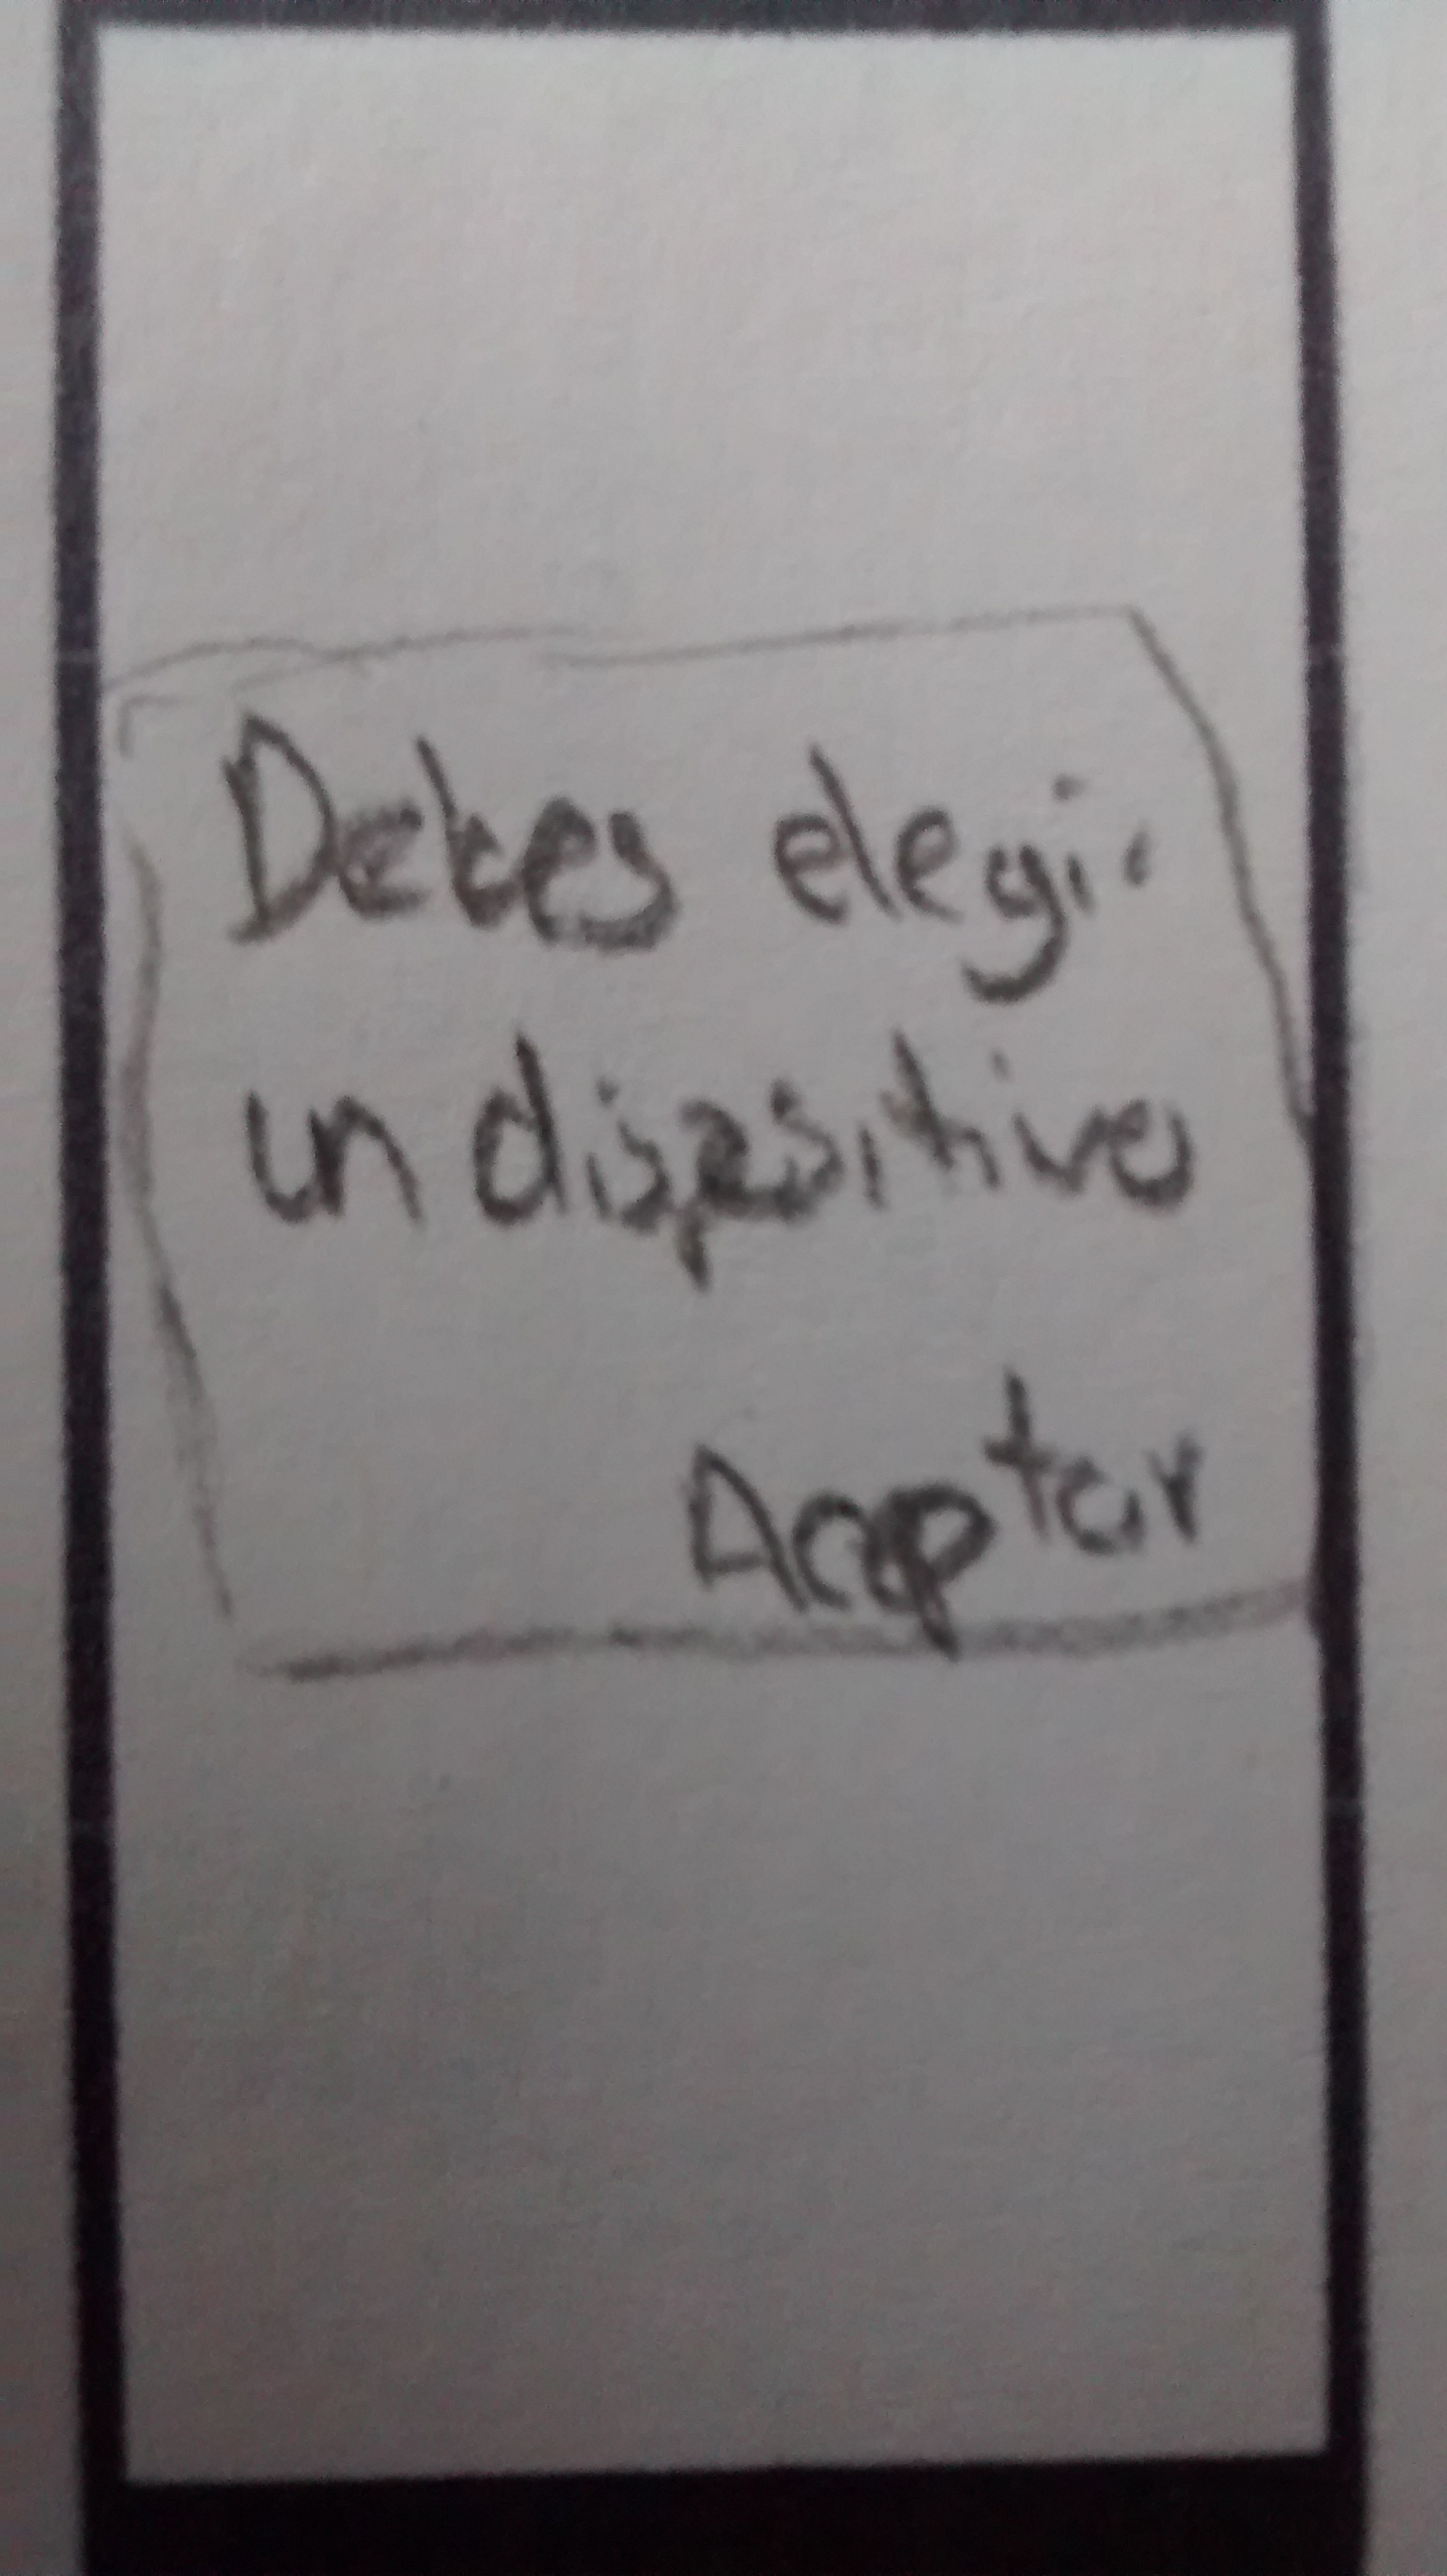 Debes elegir
un dispositivo
Aceptar